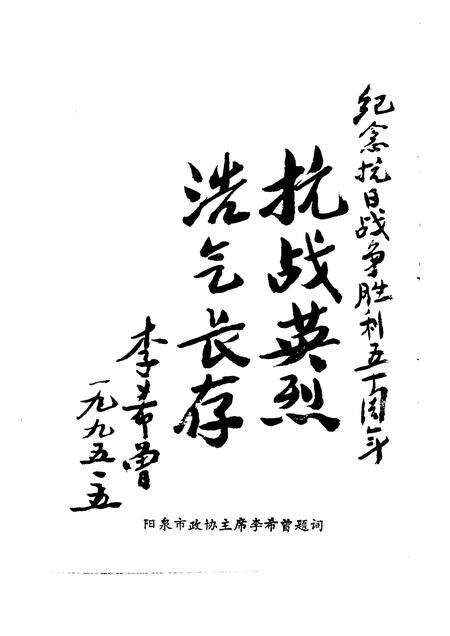 纪念抗日战争胜利五十周年
抗战英烈
浩气长存
李希曾
一九九五·五
阳泉市政协主席李希曾题词